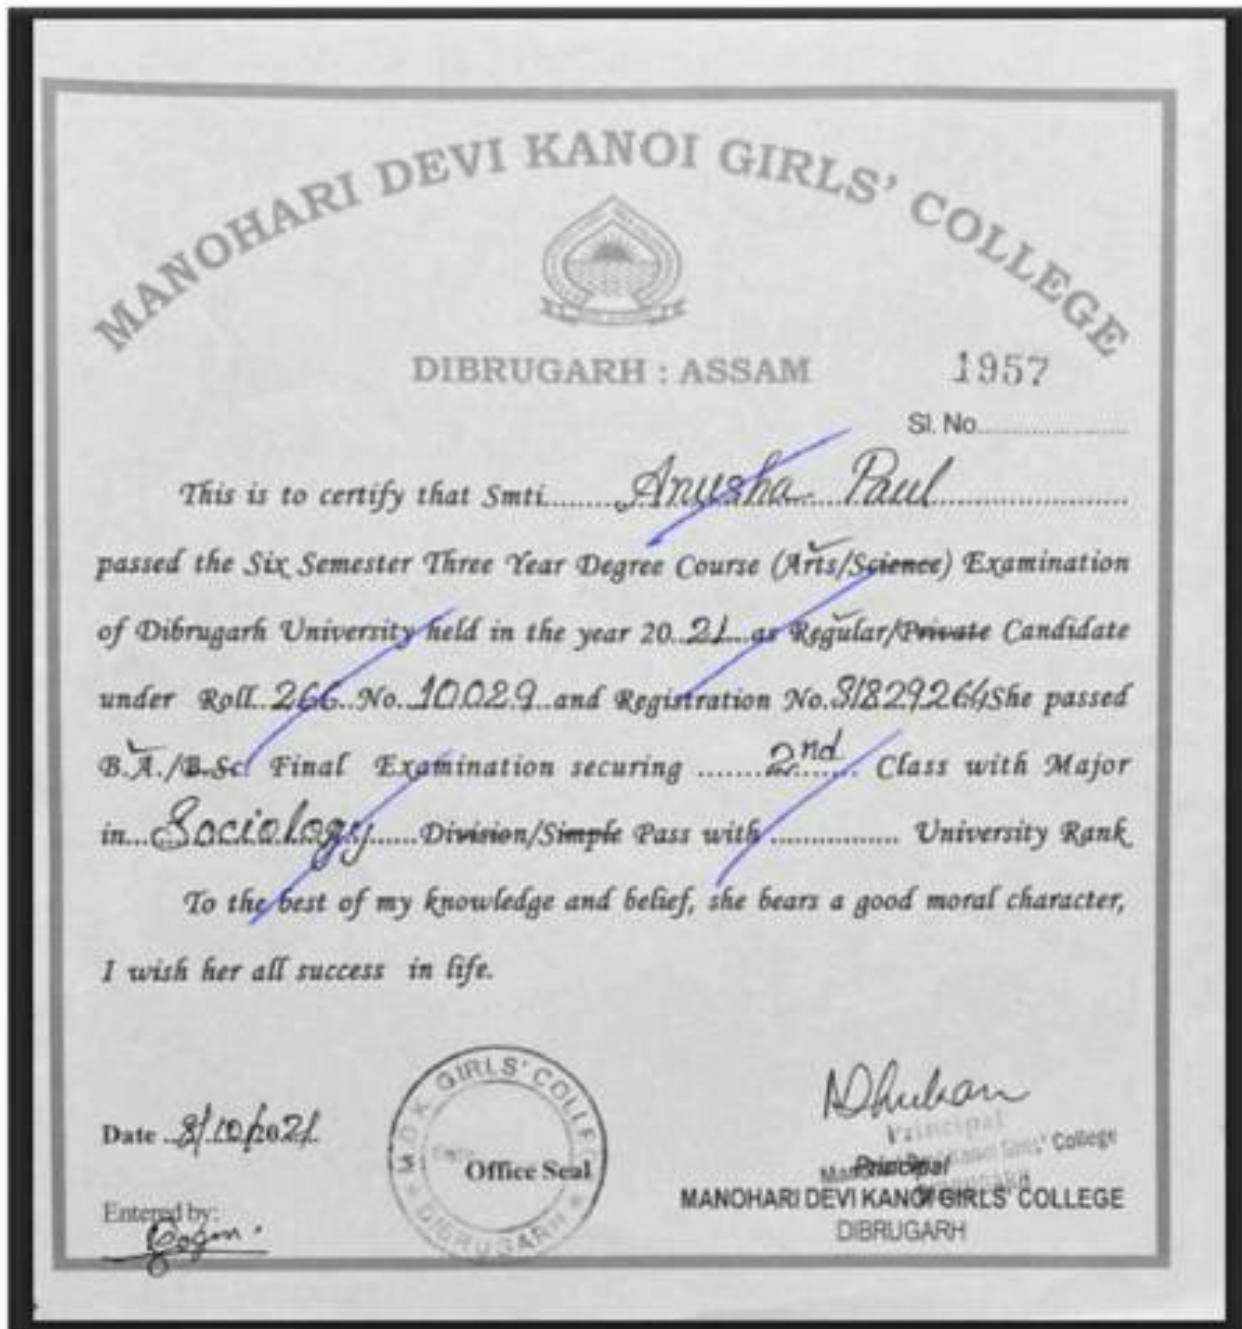 MANOHARI DEVI KANOI GIRLS' COLLEGE
DIBRUGARH : ASSAM
1957
Sl. No....................
This is to certify that Smti......Anusha Paul..................
passed the Six Semester Three Year Degree Course (Arts/Science) Examination
of Dibrugarh University held in the year 20..21...as Regular/Private Candidate
under Roll..266..No..10029..and Registration No.S1829264She passed
B.A./B.Sc. Final Examination securing .......2nd....... Class with Major
in...Sociology......Division/Simple Pass with ................ University Rank
To the best of my knowledge and belief, she bears a good moral character,
I wish her all success in life.
Date ..8/10/2021
M.D.K. GIRLS' COLLEGE
DIBRUGARH
Office Seal
Entered by:
Principal
College
Principal
MANOHARI DEVI KANOI GIRLS' COLLEGE
DIBRUGARH